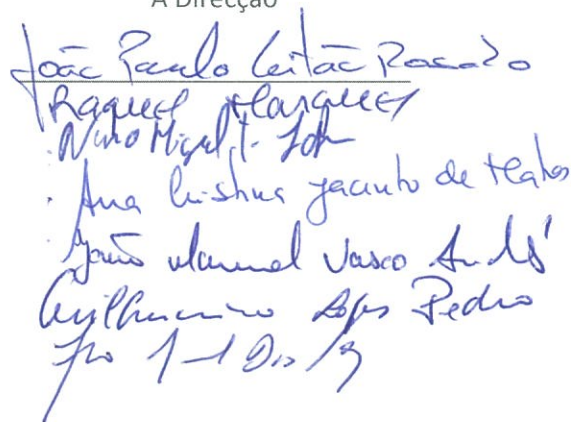 A Direcção
João Paulo Leitão Rosado
Raquel Marques
Nuno Miguel
Ana Cristina Jacinto de Matos
João Manuel Vasco André
Guilhermino Lopes Pedro